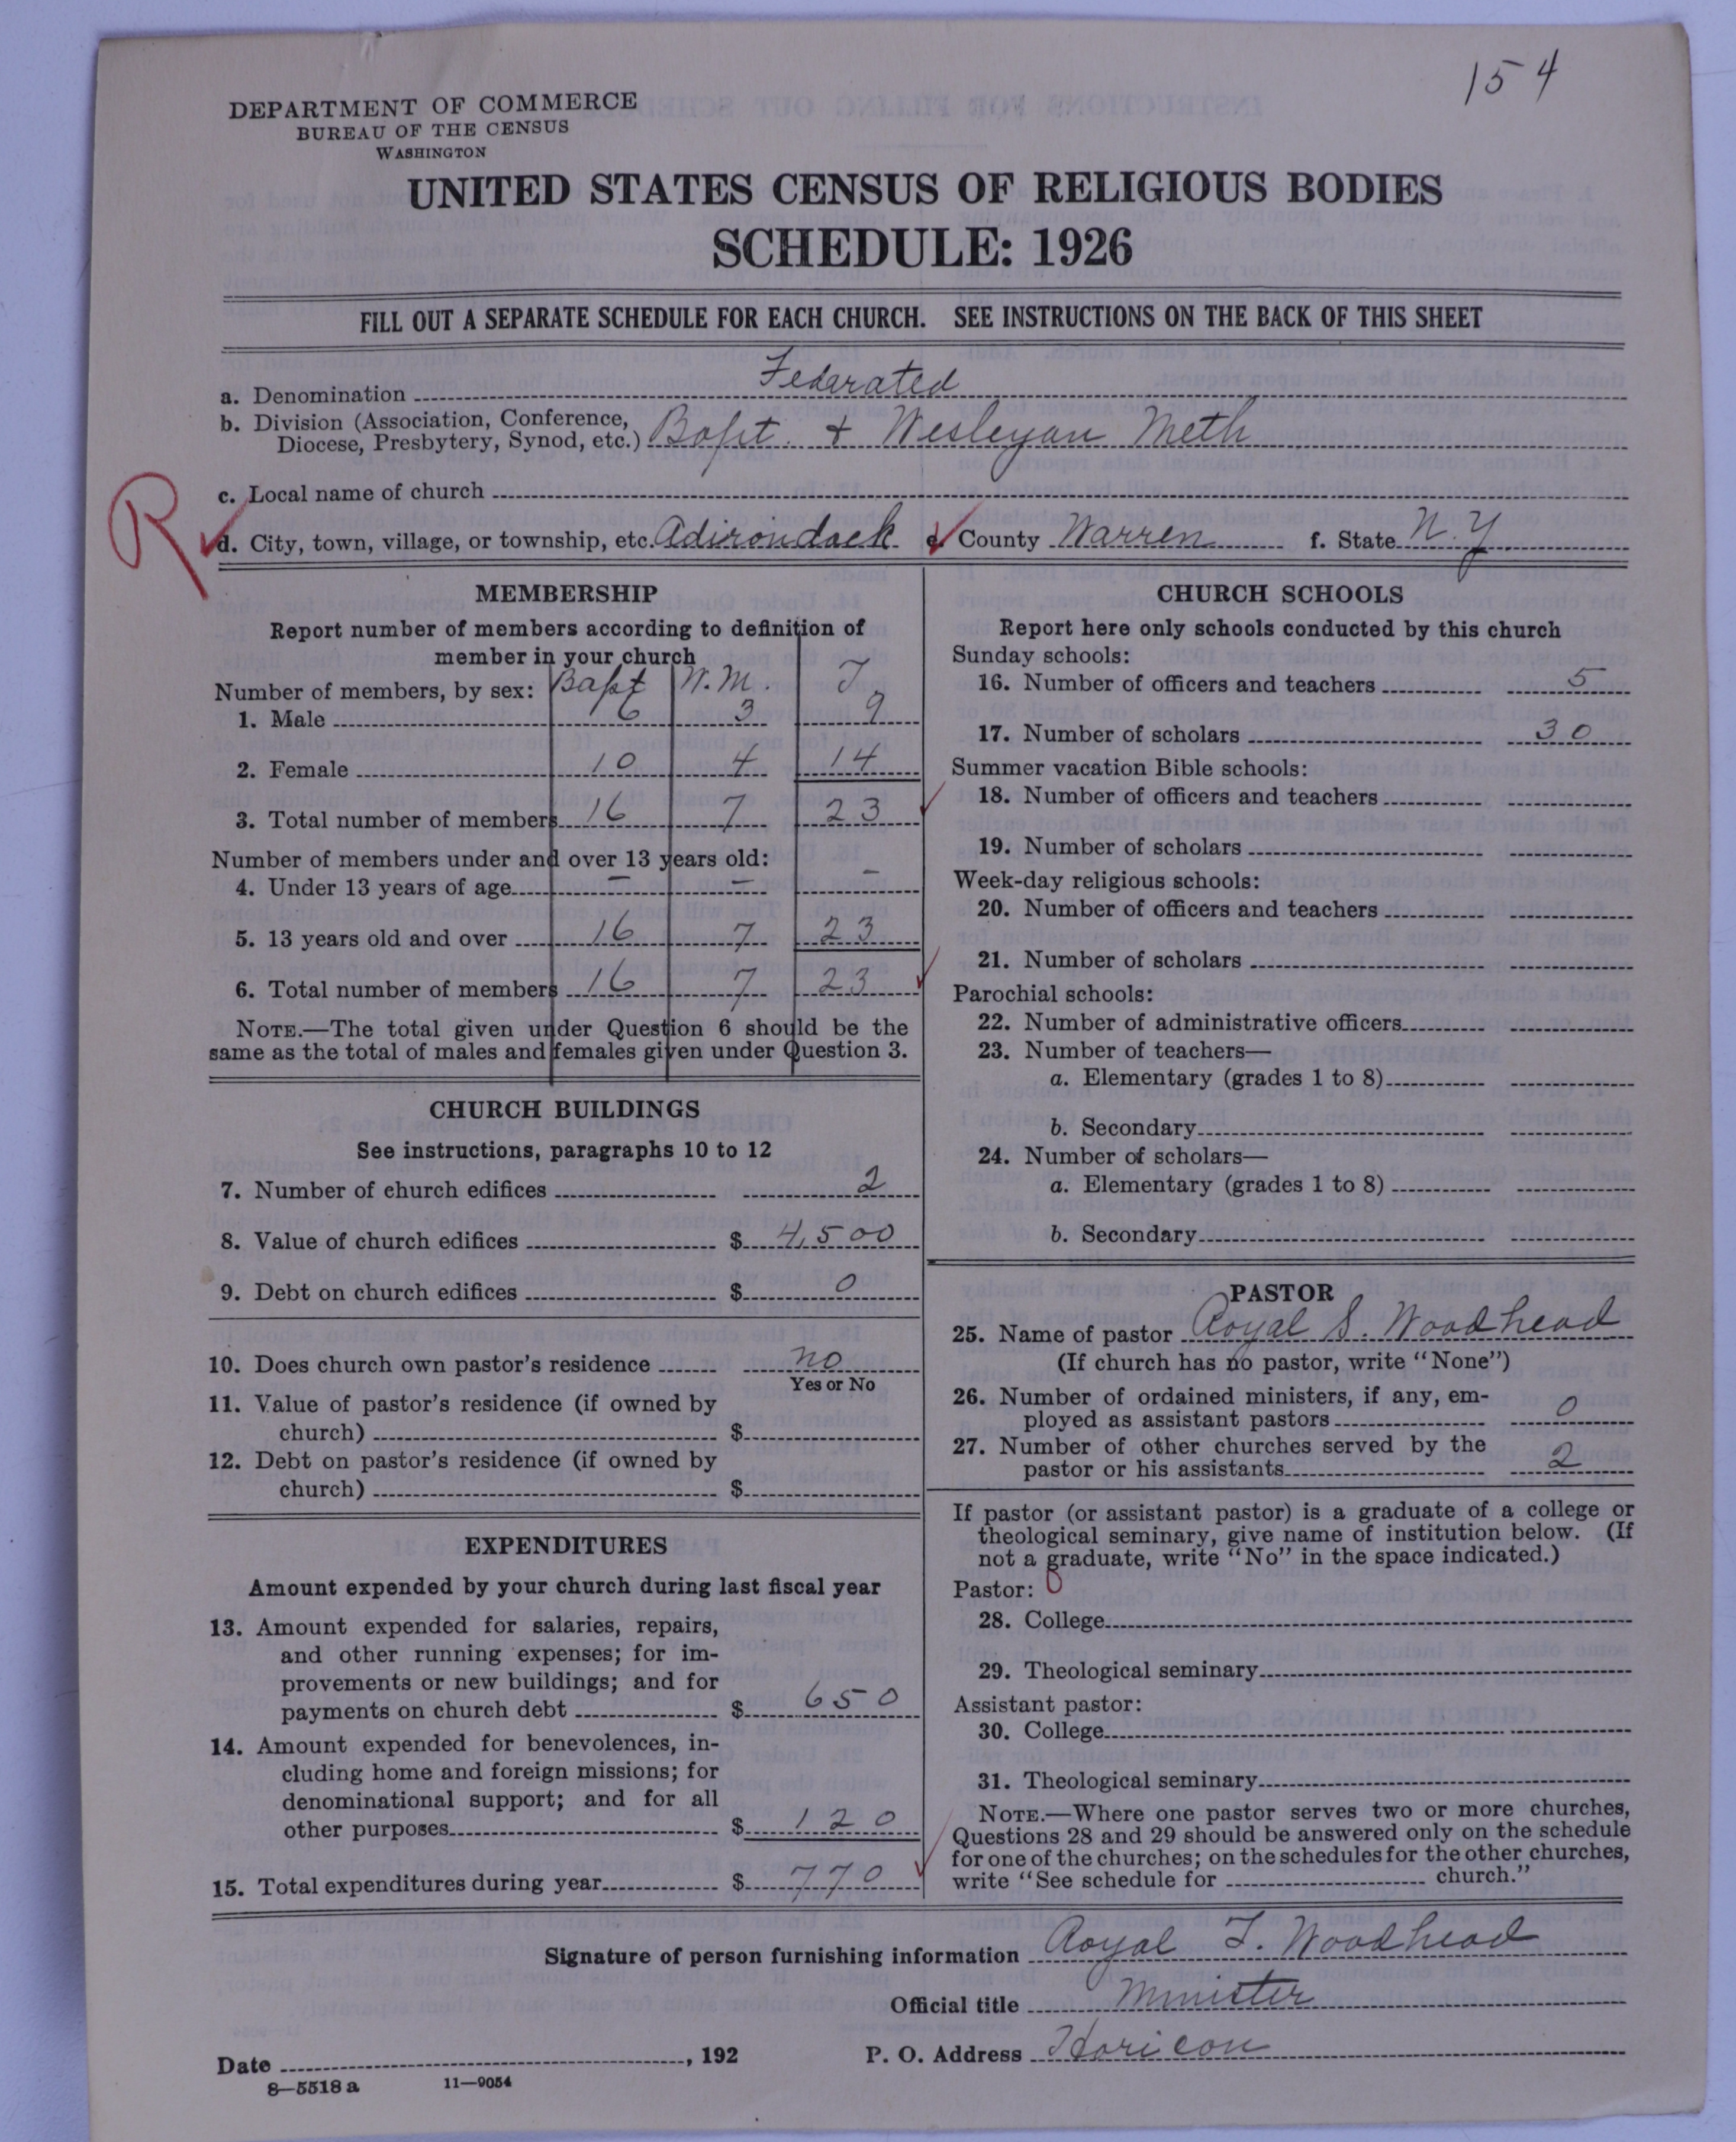 154
DEPARTMENT OF COMMERCE
BUREAU OF THE CENSUS
WASHINGTON
UNITED STATES CENSUS OF RELIGIOUS BODIES
SCHEDULE: 1926
FILL OUT A SEPARATE SCHEDULE FOR EACH CHURCH. SEE INSTRUCTIONS ON THE BACK OF THIS SHEET
a. Denomination Federated
b. Division (Association, Conference,
Diocese, Presbytery, Synod, etc.) Bapt. + Wesleyan Meth
c. Local name of church
R
d. City, town, village, or township, etc. Adirondack e. County Warren f. State N.Y.
MEMBERSHIP
Report number of members according to definition of
member in your church
Number of members, by sex: Bapt W.M. T
1. Male 6 3 9
2. Female 10 4 14
3. Total number of members 16 7 23
Number of members under and over 13 years old:
4. Under 13 years of age - - -
5. 13 years old and over 16 7 23
6. Total number of members 16 7 23
NOTE.—The total given under Question 6 should be the
same as the total of males and females given under Question 3.
CHURCH BUILDINGS
See instructions, paragraphs 10 to 12
7. Number of church edifices 2
8. Value of church edifices $ 4,500
9. Debt on church edifices $ 0
10. Does church own pastor's residence no
Yes or No
11. Value of pastor's residence (if owned by
church) $
12. Debt on pastor's residence (if owned by
church) $
EXPENDITURES
Amount expended by your church during last fiscal year
13. Amount expended for salaries, repairs,
and other running expenses; for im-
provements or new buildings; and for
payments on church debt $ 650
14. Amount expended for benevolences, in-
cluding home and foreign missions; for
denominational support; and for all
other purposes $ 120
15. Total expenditures during year $ 770
CHURCH SCHOOLS
Report here only schools conducted by this church
Sunday schools:
16. Number of officers and teachers 5
17. Number of scholars 30
Summer vacation Bible schools:
18. Number of officers and teachers
19. Number of scholars
Week-day religious schools:
20. Number of officers and teachers
21. Number of scholars
Parochial schools:
22. Number of administrative officers
23. Number of teachers—
a. Elementary (grades 1 to 8)
b. Secondary
24. Number of scholars—
a. Elementary (grades 1 to 8)
b. Secondary
PASTOR
25. Name of pastor Royal S. Woodhead
(If church has no pastor, write "None")
26. Number of ordained ministers, if any, em-
ployed as assistant pastors 0
27. Number of other churches served by the
pastor or his assistants 2
If pastor (or assistant pastor) is a graduate of a college or
theological seminary, give name of institution below. (If
not a graduate, write "No" in the space indicated.)
Pastor: 0
28. College
29. Theological seminary
Assistant pastor:
30. College
31. Theological seminary
NOTE.—Where one pastor serves two or more churches,
Questions 28 and 29 should be answered only on the schedule
for one of the churches; on the schedules for the other churches,
write "See schedule for church."
Signature of person furnishing information Royal T. Woodhead
Official title Minister
Date , 192 P. O. Address Horicon
8—5518 a 11—9054